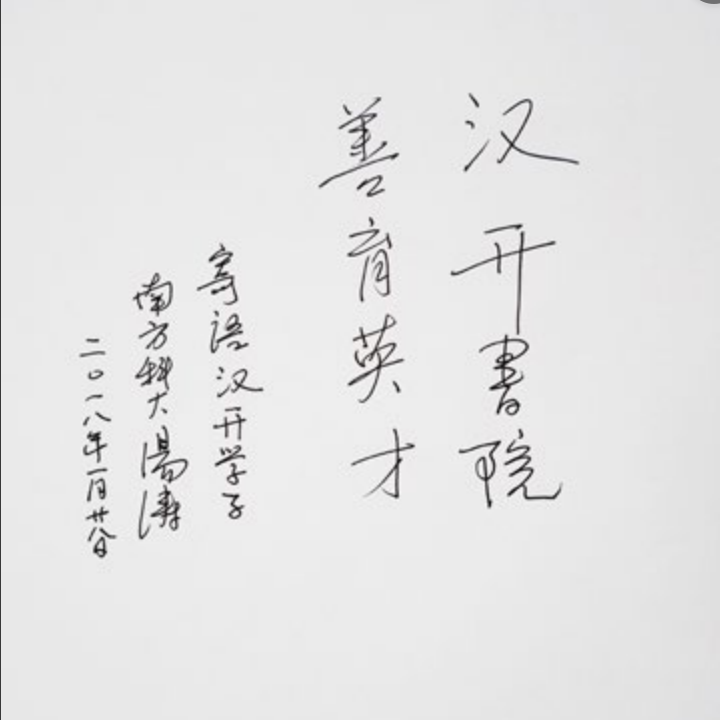 汉开書院
善育英才
寄语汉开学子
南方科大 湯涛
二〇一八年一月廿八日